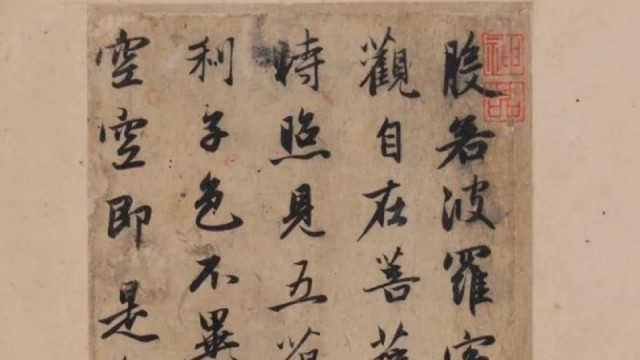 般若波羅
觀自在菩薩
時照見五
利子色不異
空空即是